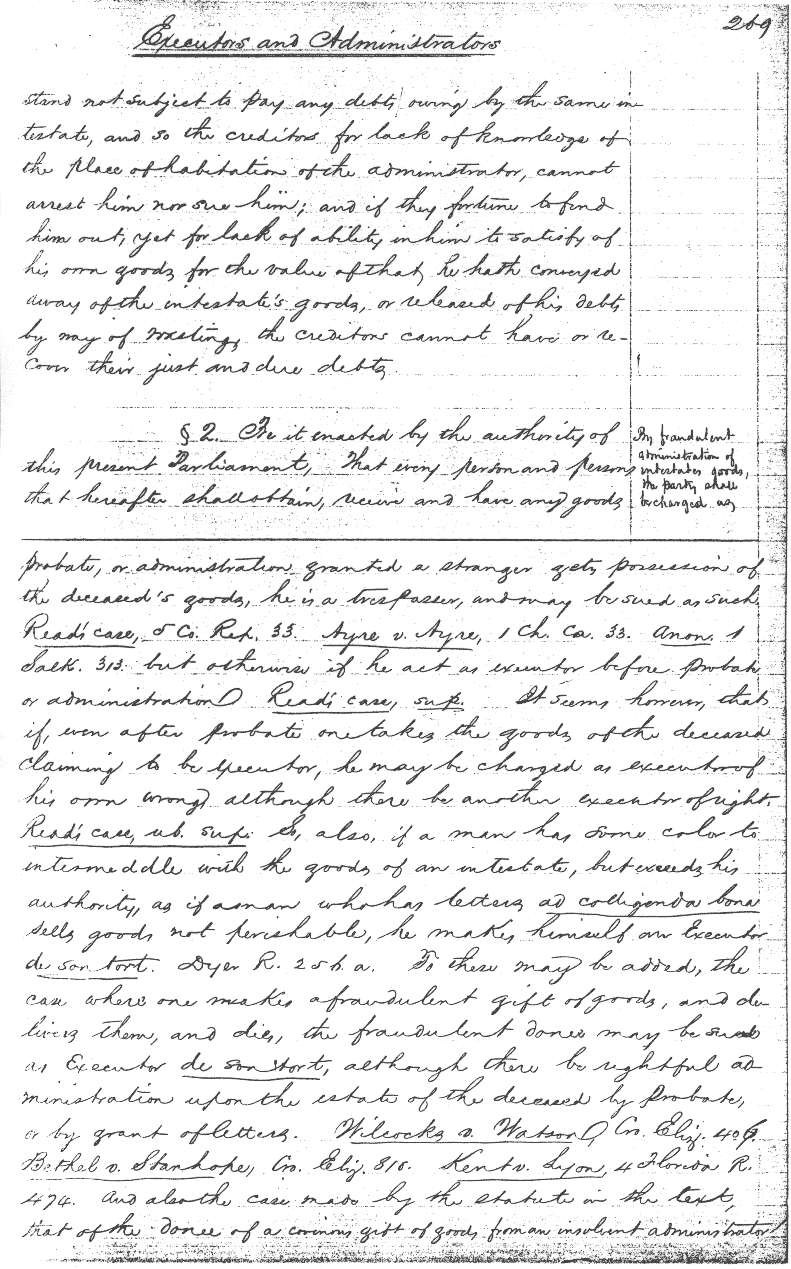 269
Executors and Administrators
stand not subject to pay any debts owing by the same in
testate, and so the creditors for lack of knowledge of
the place of habitation of the administrator, cannot
arrest him nor sue him; and if they fortune to find
him out, yet for lack of ability in him to satisfy of
his own goods for the value of that he hath conveyed
away of the intestate's goods, or released of his debts
by way of wasting, the creditors cannot have or re-
cover their just and due debts.
§ 2. Be it enacted by the authority of
this present Parliament, That every person and persons
that hereafter shall obtain, receive and have any goods
By fraudulent
administration of
intestates goods,
the party shall
be charged as
probate, or administration granted a stranger gets possession of
the deceased's goods, he is a trespasser, and may be sued as such.
Read's case, 5 Co. Rep. 33. Ayre v. Ayre, 1 Ch. Ca. 33. Anon. 1
Salk. 313. but otherwise if he act as executor before probate
or administration Read's case, sup. It seems however, that
if, even after probate one takes the goods of the deceased
claiming to be executor, he may be charged as executor of
his own wrong although there be another executor of right.
Read's case, ub. sup. So, also, if a man has some color to
intermeddle with the goods of an intestate, but exceeds his
authority, as if a man who has letters ad colligenda bona
sells goods not perishable, he makes himself an Executor
de son tort. Dyer R. 256. a. To these may be added, the
case where one makes a fraudulent gift of goods, and de-
livers them, and dies, the fraudulent donee may be sued
as Executor de son tort, although there be rightful ad
ministration upon the estate of the deceased by probate,
or by grant of letters. Wilcocks v. Watson, Cro. Eliz. 405.
Bethel v. Stanhope, Cro. Eliz. 810. Kent v. Lyon, 4 Florida R.
474. And also the case made by the statute in the text,
that of the donee of a covinous gift of goods from an insolvent administrator